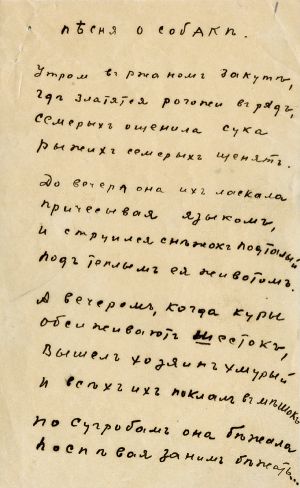 Пѣсня о собакѣ.
Утромъ въ ржаномъ закутѣ,
Гдѣ златятся рогожи въ рядъ,
Семерыхъ ощенила сука
Рыжихъ семерыхъ щенятъ.
До вечера она ихъ ласкала
Причесывая языкомъ,
И струился снѣжокъ подталый
Подъ теплымъ ея животомъ.
А вечеромъ, когда куры
Обсиживаютъ шестокъ,
Вышелъ хозяинъ хмурый
И всѣхъ ихъ поклалъ въ мѣшокъ
По сугробамъ она бѣжала
Поспѣвая за нимъ бѣжать...